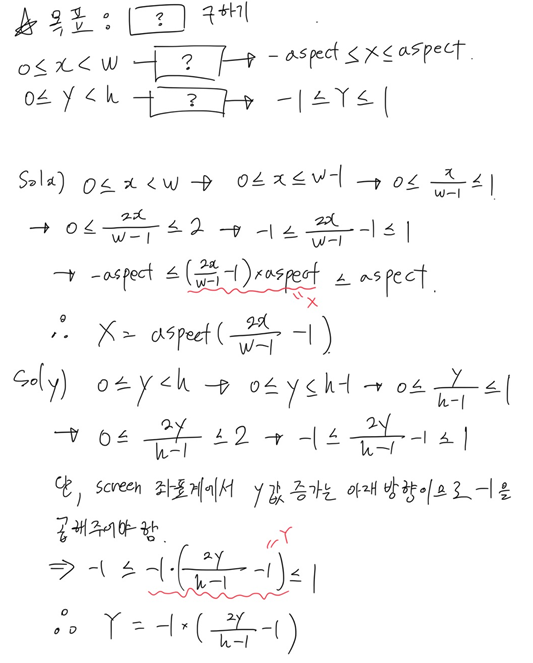 ☆ 목표 : ? 구하기
0 ≤ x < w → ? → -aspect ≤ X ≤ aspect.
0 ≤ y < h → ? → -1 ≤ Y ≤ 1
Sol x) 0 ≤ x < w → 0 ≤ x ≤ w-1 → 0 ≤ x/(w-1) ≤ 1
→ 0 ≤ 2x/(w-1) ≤ 2 → -1 ≤ 2x/(w-1) -1 ≤ 1
→ -aspect ≤ (2x/(w-1) -1) × aspect ≤ aspect.
"X
∴ X = aspect(2x/(w-1) -1)
Sol y) 0 ≤ y < h → 0 ≤ y ≤ h-1 → 0 ≤ y/(h-1) ≤ 1
→ 0 ≤ 2y/(h-1) ≤ 2 → -1 ≤ 2y/(h-1) -1 ≤ 1
단, screen 좌표계에서 y값 증가는 아래 방향이므로 -1을
곱해주어야 함.
"Y
⇒ -1 ≤ -1·(2y/(h-1) -1) ≤ 1
∴ Y = -1 × (2y/(h-1) -1)